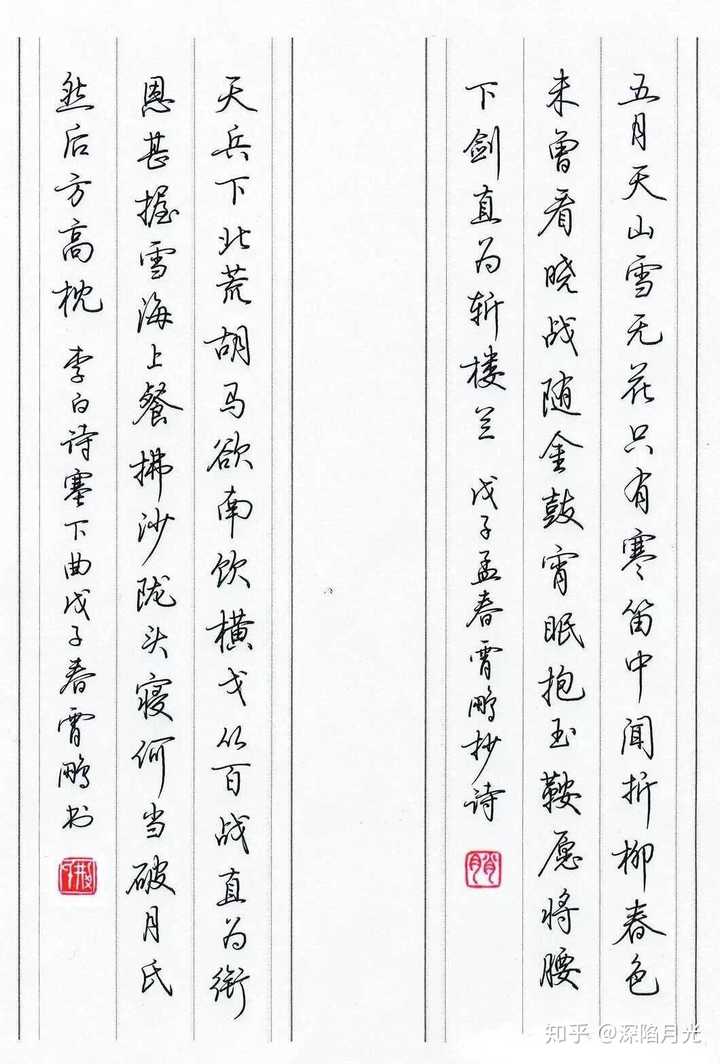 五月天山雪无花只有寒笛中闻折柳春色
未曾看晓战随金鼓宵眠抱玉鞍愿将腰
下剑直为斩楼兰 戊子孟春霄鹏抄诗
天兵下北荒胡马欲南饮横戈从百战直为衔
恩甚握雪海上餐拂沙陇头寝何当破月氏
然后方高枕 李白诗塞下曲戊子春霄鹏书
知乎 @深陷月光